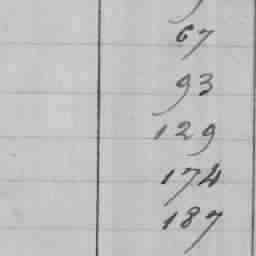 67
93
129
174
187